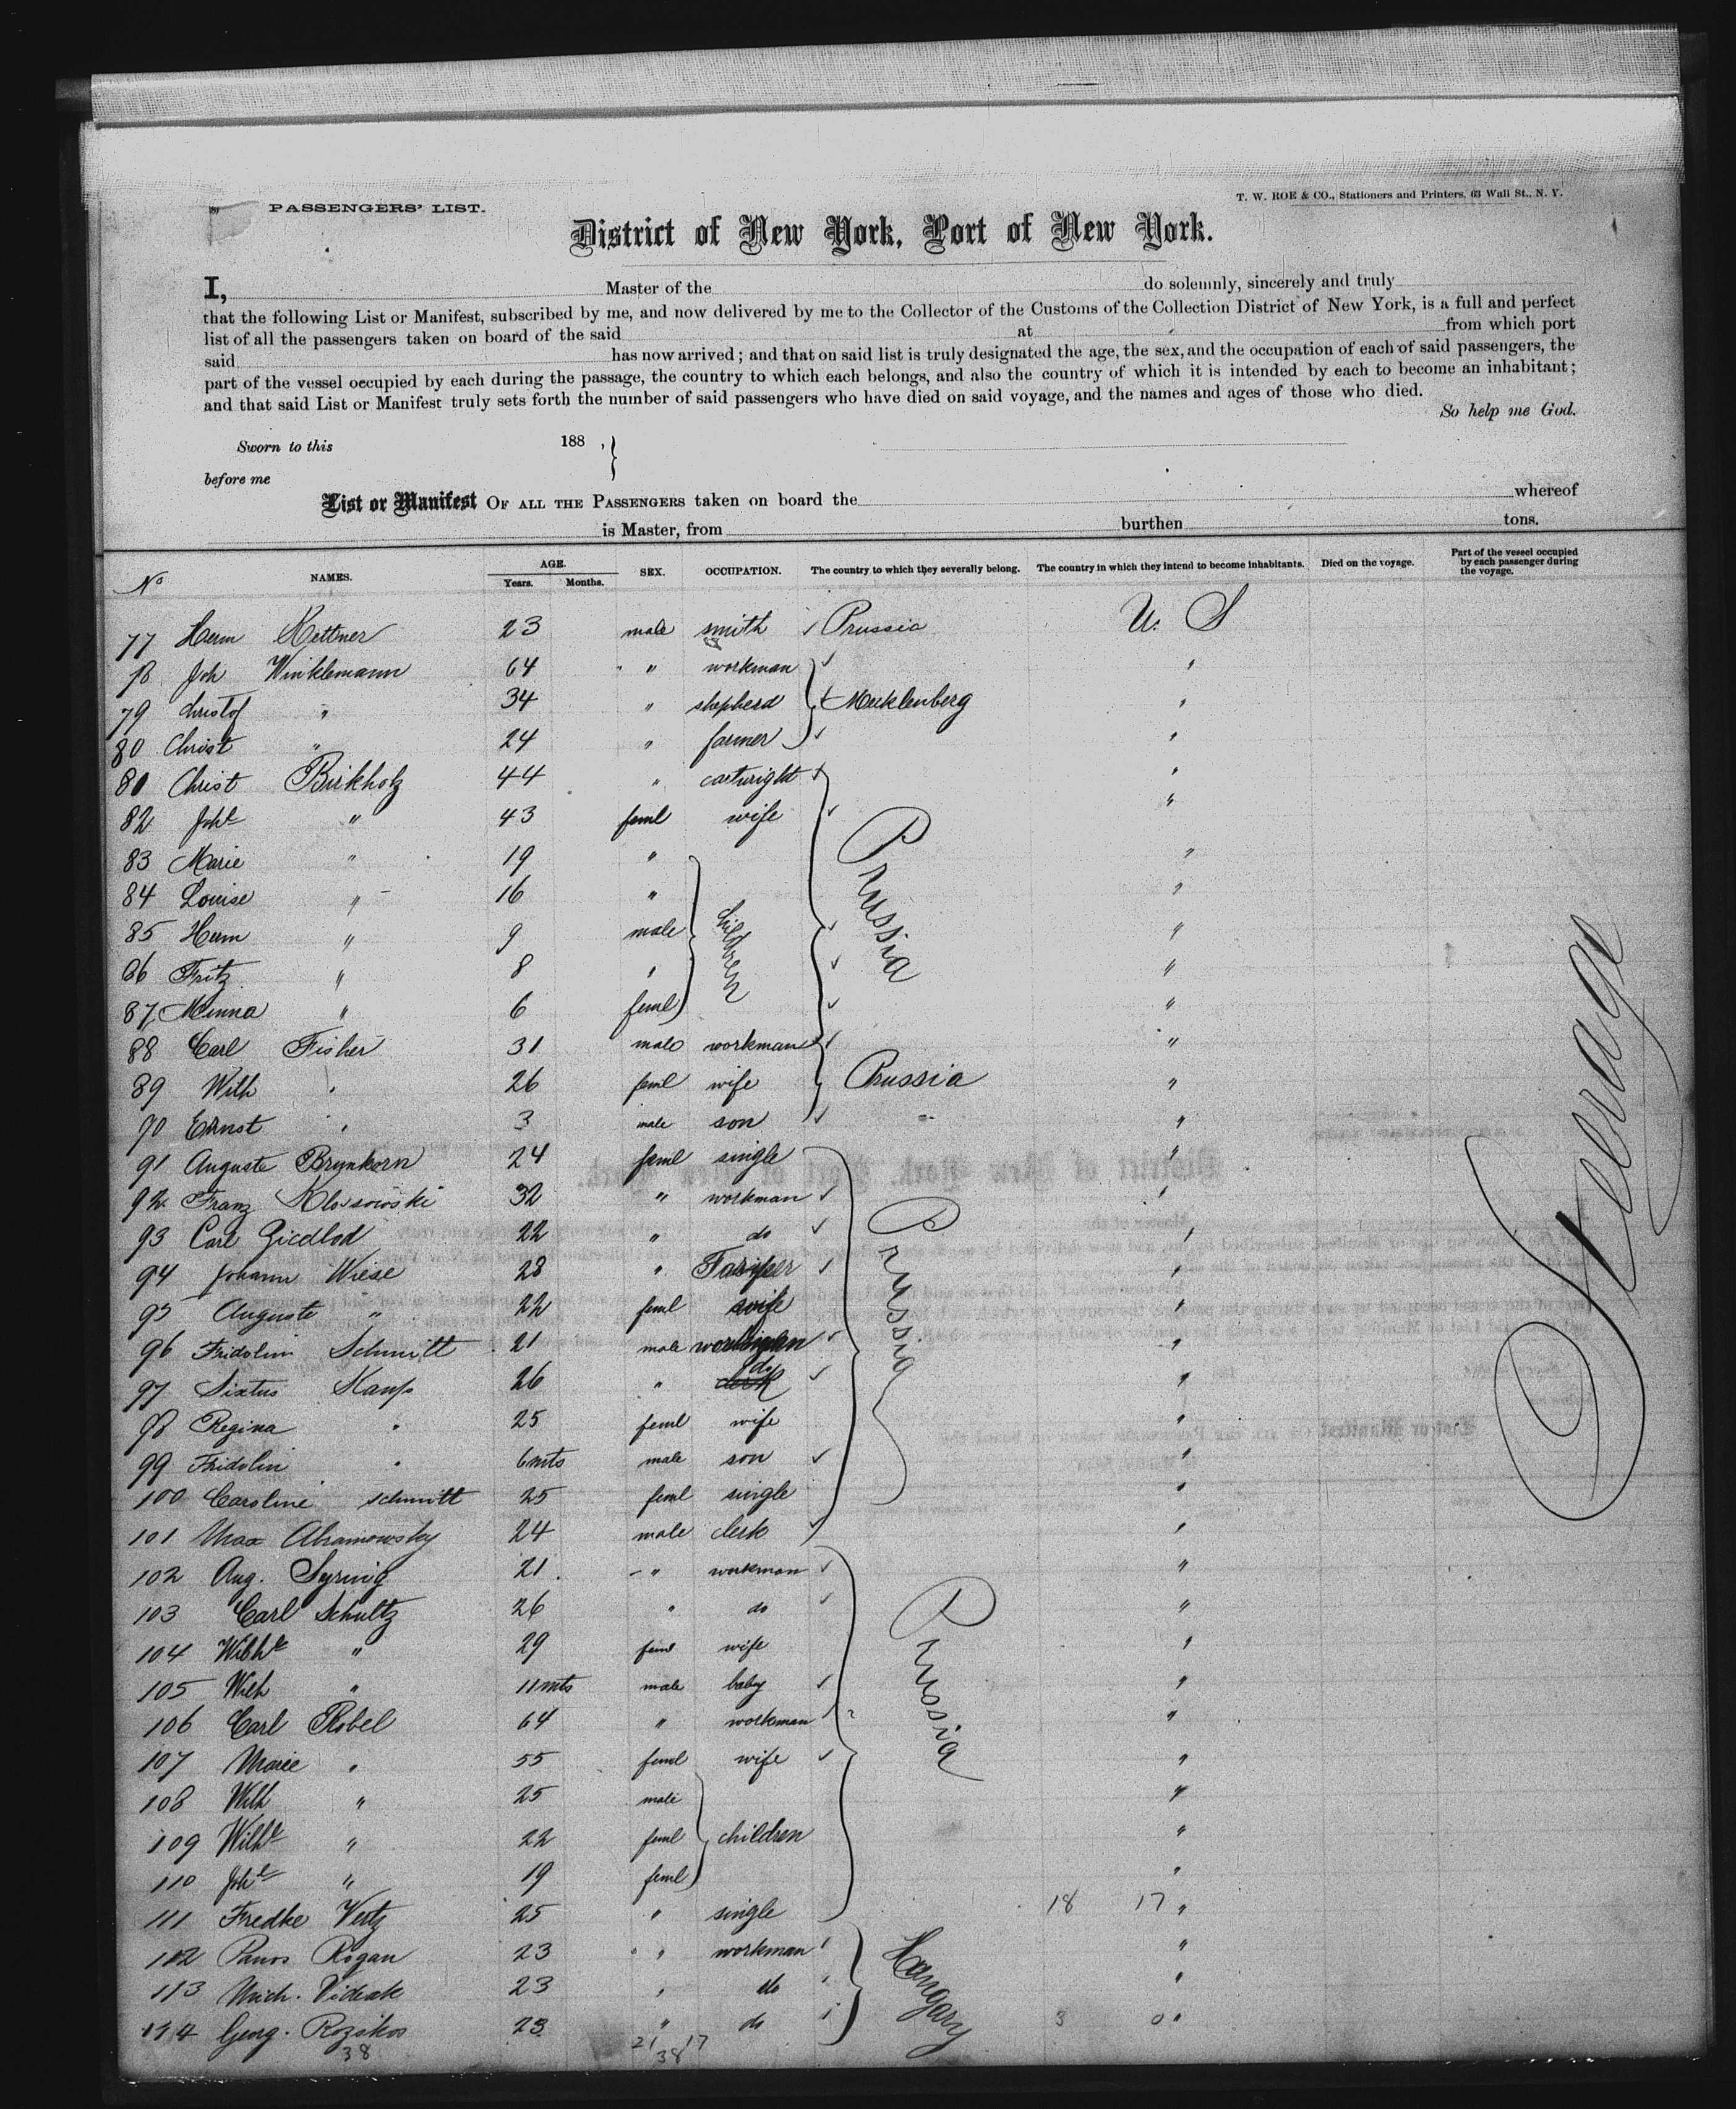 PASSENGERS' LIST.
T. W. ROE & CO., Stationers and Printers, 63 Wall St., N. Y.
District of New York, Port of New York.
I, Master of the do solemnly, sincerely and truly
that the following List or Manifest, subscribed by me, and now delivered by me to the Collector of the Customs of the Collection District of New York, is a full and perfect
list of all the passengers taken on board of the said at from which port
said has now arrived; and that on said list is truly designated the age, the sex, and the occupation of each of said passengers, the
part of the vessel occupied by each during the passage, the country to which each belongs, and also the country of which it is intended by each to become an inhabitant;
and that said List or Manifest truly sets forth the number of said passengers who have died on said voyage, and the names and ages of those who died.
So help me God.
Sworn to this 188 , }
before me
List or Manifest OF ALL THE PASSENGERS taken on board the whereof
is Master, from burthen tons.
No NAMES. AGE. Years. Months. SEX. OCCUPATION. The country to which they severally belong. The country in which they intend to become inhabitants. Died on the voyage. Part of the vessel occupied by each passenger during the voyage.
77 Herm Kettner 23 male smith Prussia U. S
78 Joh Winklemann 64 " workman "
79 Christof " 34 " shepherd Mecklenberg "
80 Christ " 24 " farmer "
81 Christ Birkholz 44 " cartwright "
82 Johe " 43 feml wife Prussia "
83 Marie " 19 " "
84 Louise " 16 " "
85 Herm " 9 male children "
86 Fritz " 8 " "
87 Minna " 6 feml "
88 Carl Fisher 31 male workman "
89 Wilh " 26 feml wife Prussia "
90 Ernst " 3 male son " "
91 Auguste Brynkorn 24 feml single "
92 Franz Klossowski 32 " workman Prussia "
93 Carl Giedlod 22 " do "
94 Johann Wiese 28 " Farmer "
95 Auguste " 22 feml wife "
96 Fridolin Schmitt 21 male workman "
97 Sixtus Kaup 26 " do "
98 Regina " 25 feml wife "
99 Fridolin " 6mts male son "
100 Caroline Schmitt 25 feml single "
101 Max Abramowsky 24 male clerk "
102 Aug. Syring 21 " workman "
103 Carl Schultz 26 " do Prussia "
104 Wilhe " 29 feml wife "
105 Wilh " 11mts male baby "
106 Carl Robel 64 " workman "
107 Marie " 55 feml wife "
108 Wilh " 25 male "
109 Wilhe " 22 feml children "
110 Johe " 19 feml "
111 Fredke Vertz 25 " single 18 17 "
112 Panos Rogan 23 " workman Hungary "
113 Mich. Videak 23 " do "
114 Georg. Rozsikos 23 " do 3 0 "
38 21 17
38
Steerage